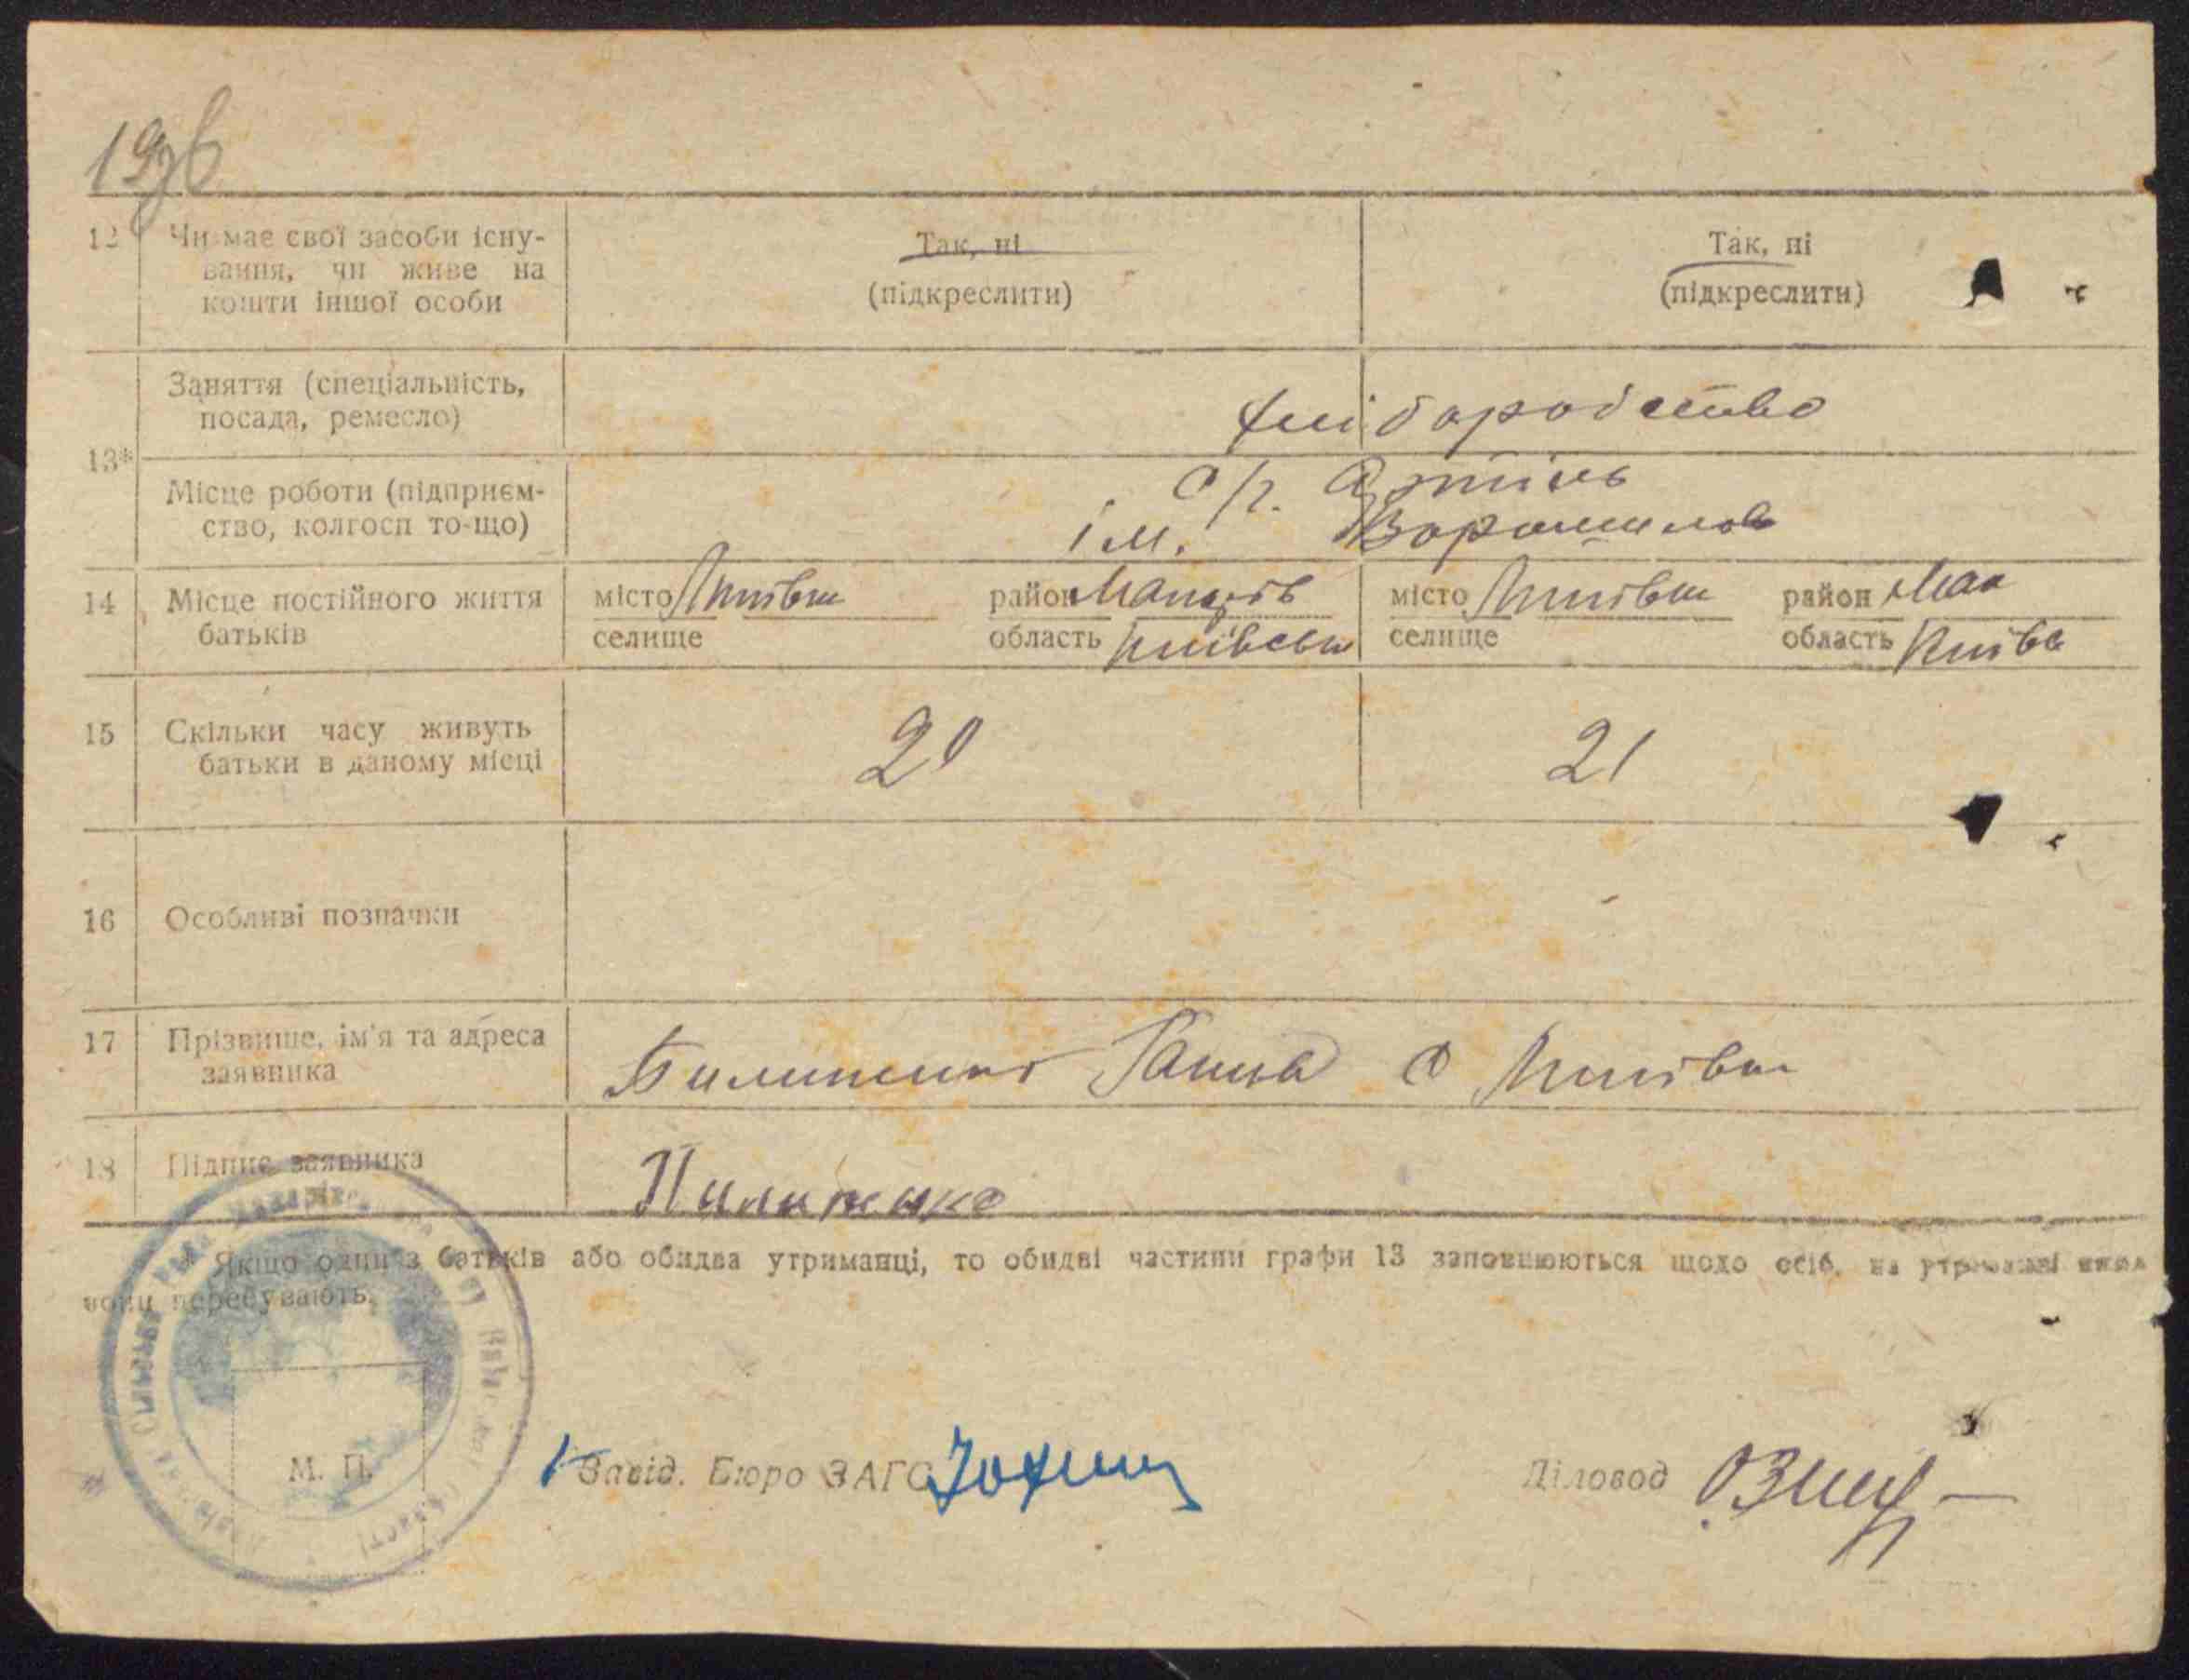 1936
12 Чи має свої засоби існу-
вання, чи живе на
кошти іншої особи
Так, ні
(підкреслити)
Так, ні
(підкреслити)
13*
Заняття (спеціальність,
посада, ремесло)
хліборобство
Місце роботи (підприєм-
ство, колгосп то-що)
с/г. Артіль
ім. Ворошилова
14 Місце постійного життя
батьків
місто
селище
район Макарів
область Київськ
місто
селище
район Мак
область Київс
15 Скільки часу живуть
батьки в даному місці
20
21
16 Особливі позначки
17 Прізвище, ім'я та адреса
заявника
Ганна с
18 Підпис заявника
* Якщо один з батьків або обидва утриманці, то обидві частини графи 13 заповнюються щодо осіб, на утриманні яких
вони перебувають.
М. П.
Завід. Бюро ЗАГС
Діловод